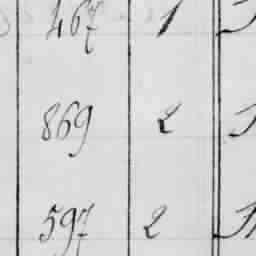 467 1
869 2
597 2